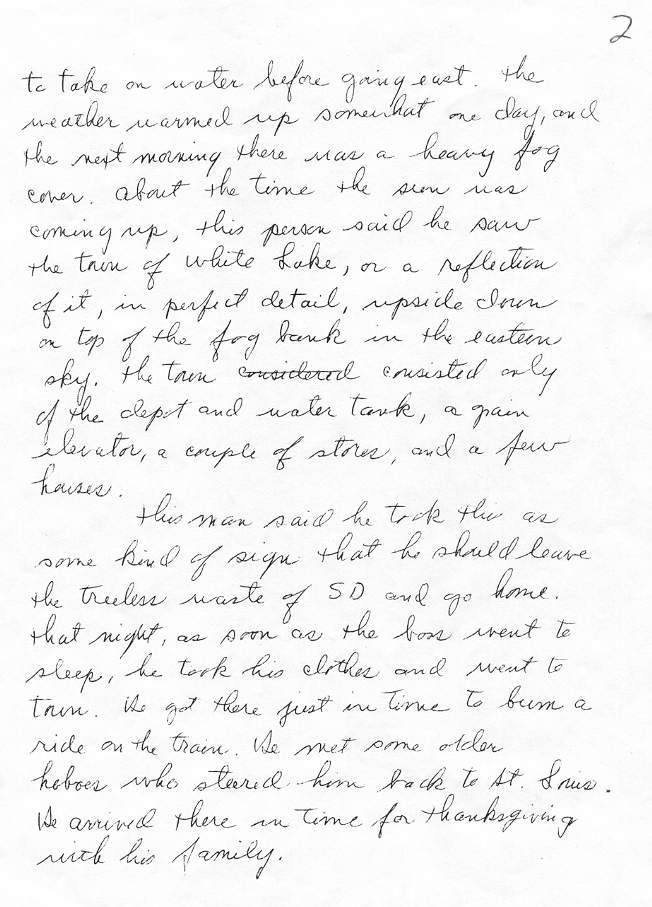 2
to take on water before going east. The
weather warmed up somewhat one day, and
the next morning there was a heavy fog
cover. About the time the sun was
coming up, this person said he saw
the town of White Lake, or a reflection
of it, in perfect detail, upside down
on top of the fog bank in the eastern
sky. The town considered consisted only
of the depot and water tank, a grain
elevator, a couple of stores, and a few
houses.
This man said he took this as
some kind of sign that he should leave
the treeless waste of SD and go home.
That night, as soon as the boss went to
sleep, he took his clothes and went to
town. He got there just in time to bum a
ride on the train. He met some older
hoboes who steered him back to St. Louis.
He arrived there in time for Thanksgiving
with his family.